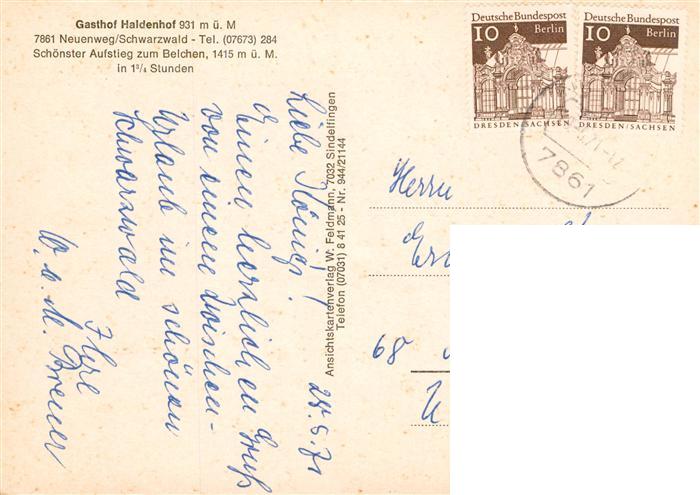 Gasthof Haldenhof 931 m ü. M
7861 Neuenweg/Schwarzwald - Tel. (07673) 284
Schönster Aufstieg zum Belchen, 1415 m ü. M.
in 1³/₄ Stunden
Liebe Königs!
Einen herzlichen Gruß
von einem Zwischen-
Urlaub im schönen
Schwarzwald
Ihre
W. u. M. Breuer
25.5.71
Ansichtskartenverlag W. Feldmann, 7032 Sindelfingen
Telefon (07031) 8 41 25 - Nr. 944/21144
Deutsche Bundespost
10 Berlin
DRESDEN/SACHSEN
Deutsche Bundespost
10 Berlin
DRESDEN/SACHSEN
7861
Herrn
68